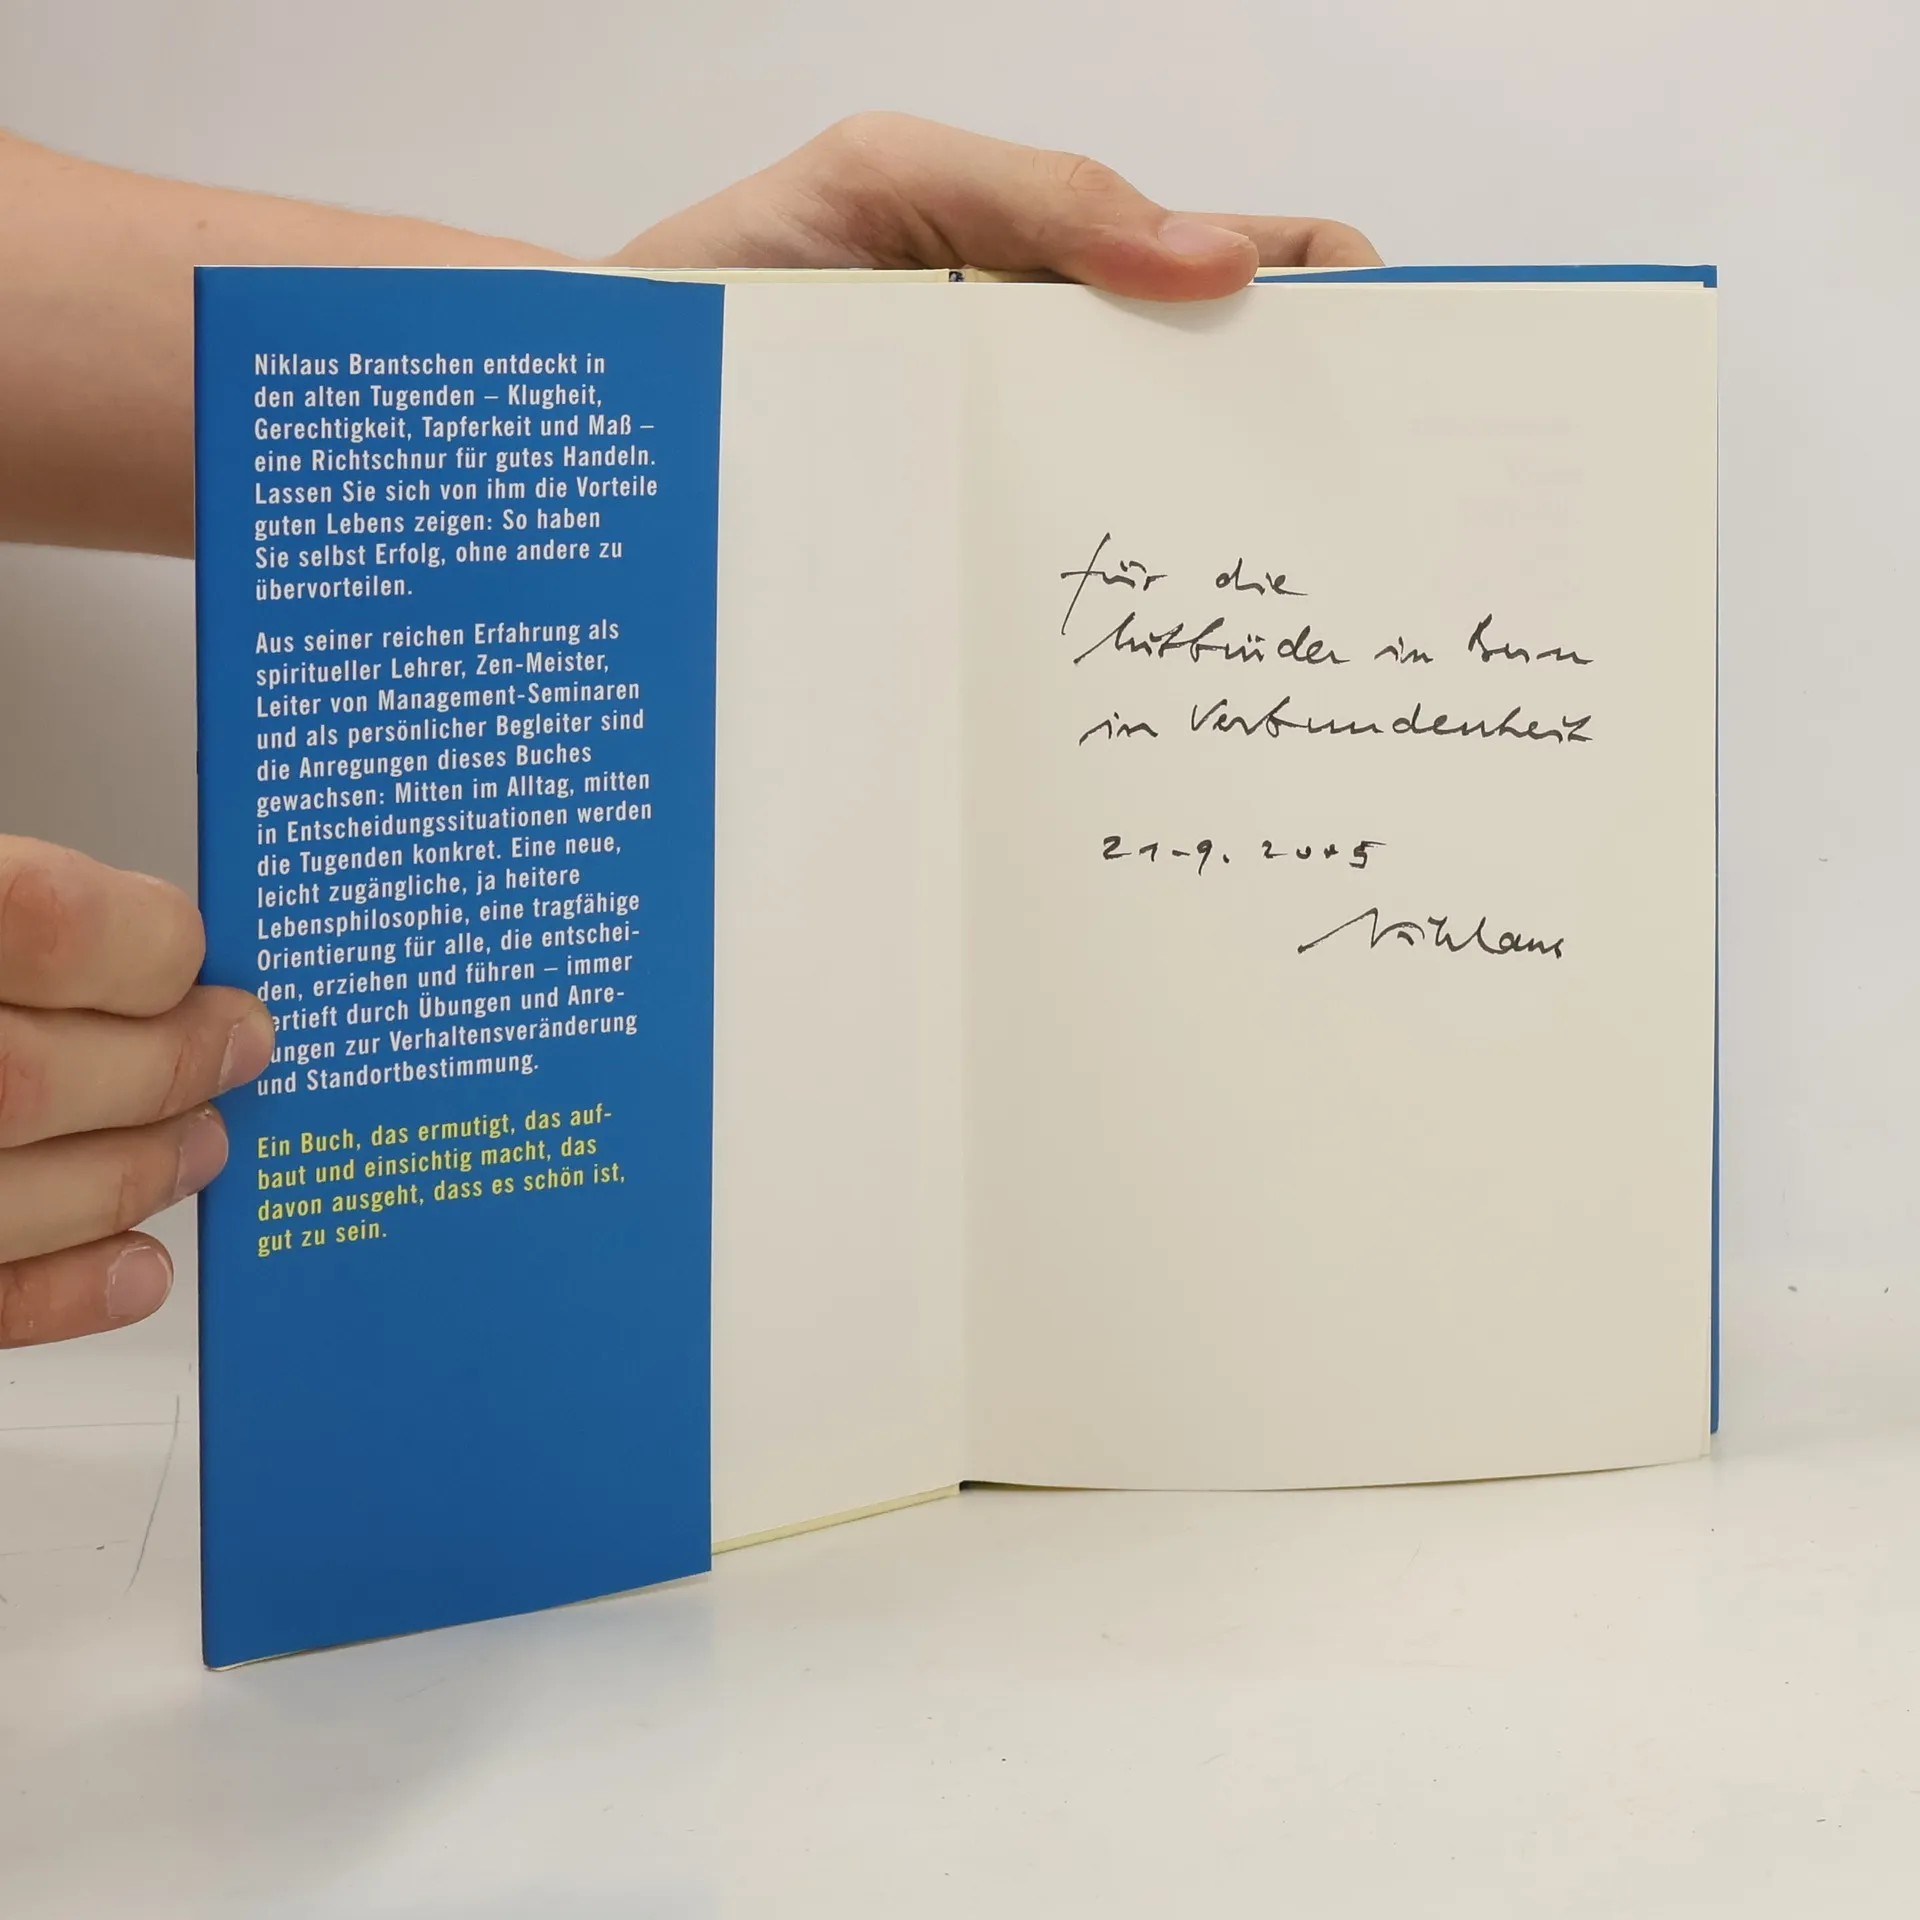 Niklaus Brantschen entdeckt in
den alten Tugenden – Klugheit,
Gerechtigkeit, Tapferkeit und Maß –
eine Richtschnur für gutes Handeln.
Lassen Sie sich von ihm die Vorteile
guten Lebens zeigen: So haben
Sie selbst Erfolg, ohne andere zu
übervorteilen.
Aus seiner reichen Erfahrung als
spiritueller Lehrer, Zen-Meister,
Leiter von Management-Seminaren
und als persönlicher Begleiter sind
die Anregungen dieses Buches
gewachsen: Mitten im Alltag, mitten
in Entscheidungssituationen werden
die Tugenden konkret. Eine neue,
leicht zugängliche, ja heitere
Lebensphilosophie, eine tragfähige
Orientierung für alle, die entschei-
den, erziehen und führen – immer
ertieft durch Übungen und Anre-
ungen zur Verhaltensveränderung
und Standortbestimmung.
Ein Buch, das ermutigt, das auf-
baut und einsichtig macht, das
davon ausgeht, dass es schön ist,
gut zu sein.
für die
Mitbrüder in Bern
in Verbundenheit
21-9. 2005
Niklaus